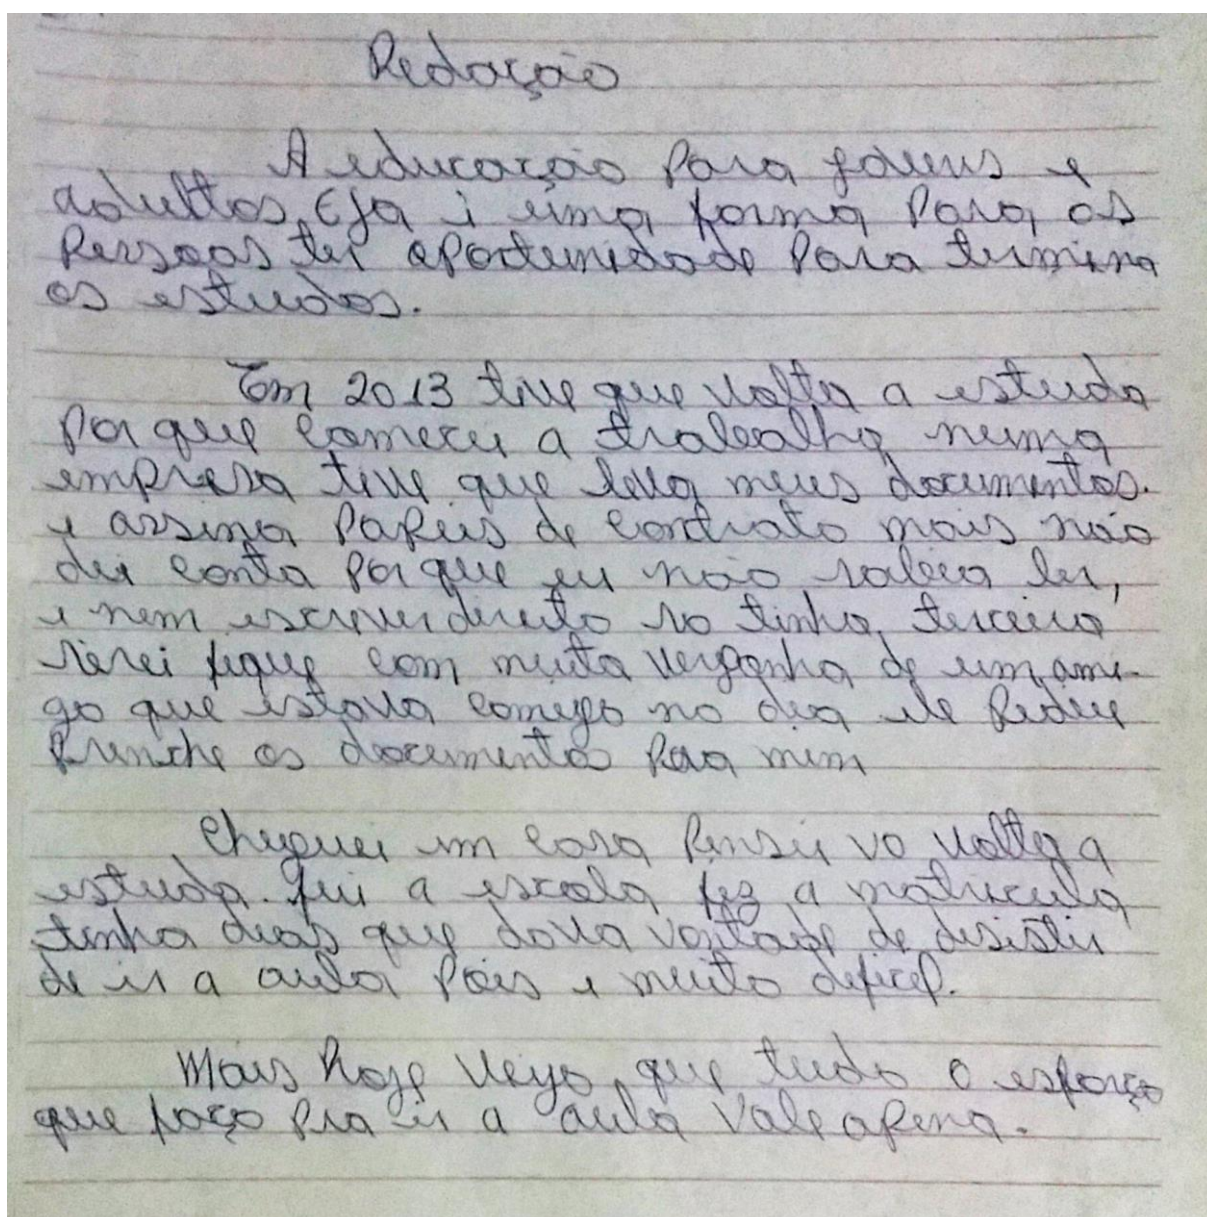 Redação
A educação para jovens e
adultos, Eja i uma forma para as
pessoas ter oportunidade para termina
os estudos.
Em 2013 tive que volta a estuda
por que comecei a trabalha numa
empresa tive que leva meus documentos.
e assina papeis de contrato mais não
dei conta por que eu não sabia ler,
e nem escrever direito so tinha terceira
serei fique com muita vergonha de um ami-
go que estava comigo no dia ele pediu
prenche os documentos para mim
Cheguei em casa pensei vo volta a
estuda. fui a escola fez a matricula
tinha dias que dava vontade de desistir
de ir a aula pois e muito dificil.
Mais hoje vejo que tudo o esforço
que faço pra ir a aula vale apena.